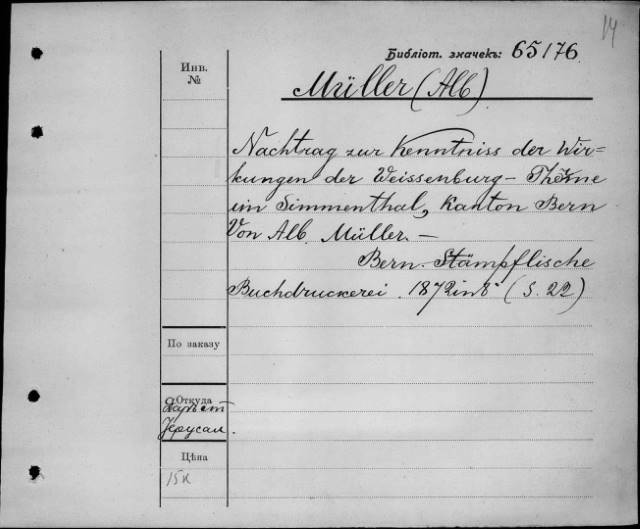 14
Библіот. значекъ: 65/176.
Инв. №
Müller (Alb)
Nachtrag zur Kenntniss der Wir=
kungen der Weissenburg-
im Simmenthal, Kanton Bern
Von Alb. Müller. —
Bern. Stämpflische
Buchdruckerei. 1872 in 8° (S. 22)
По заказу
Откуда
Іерусал.
Цѣна
15к